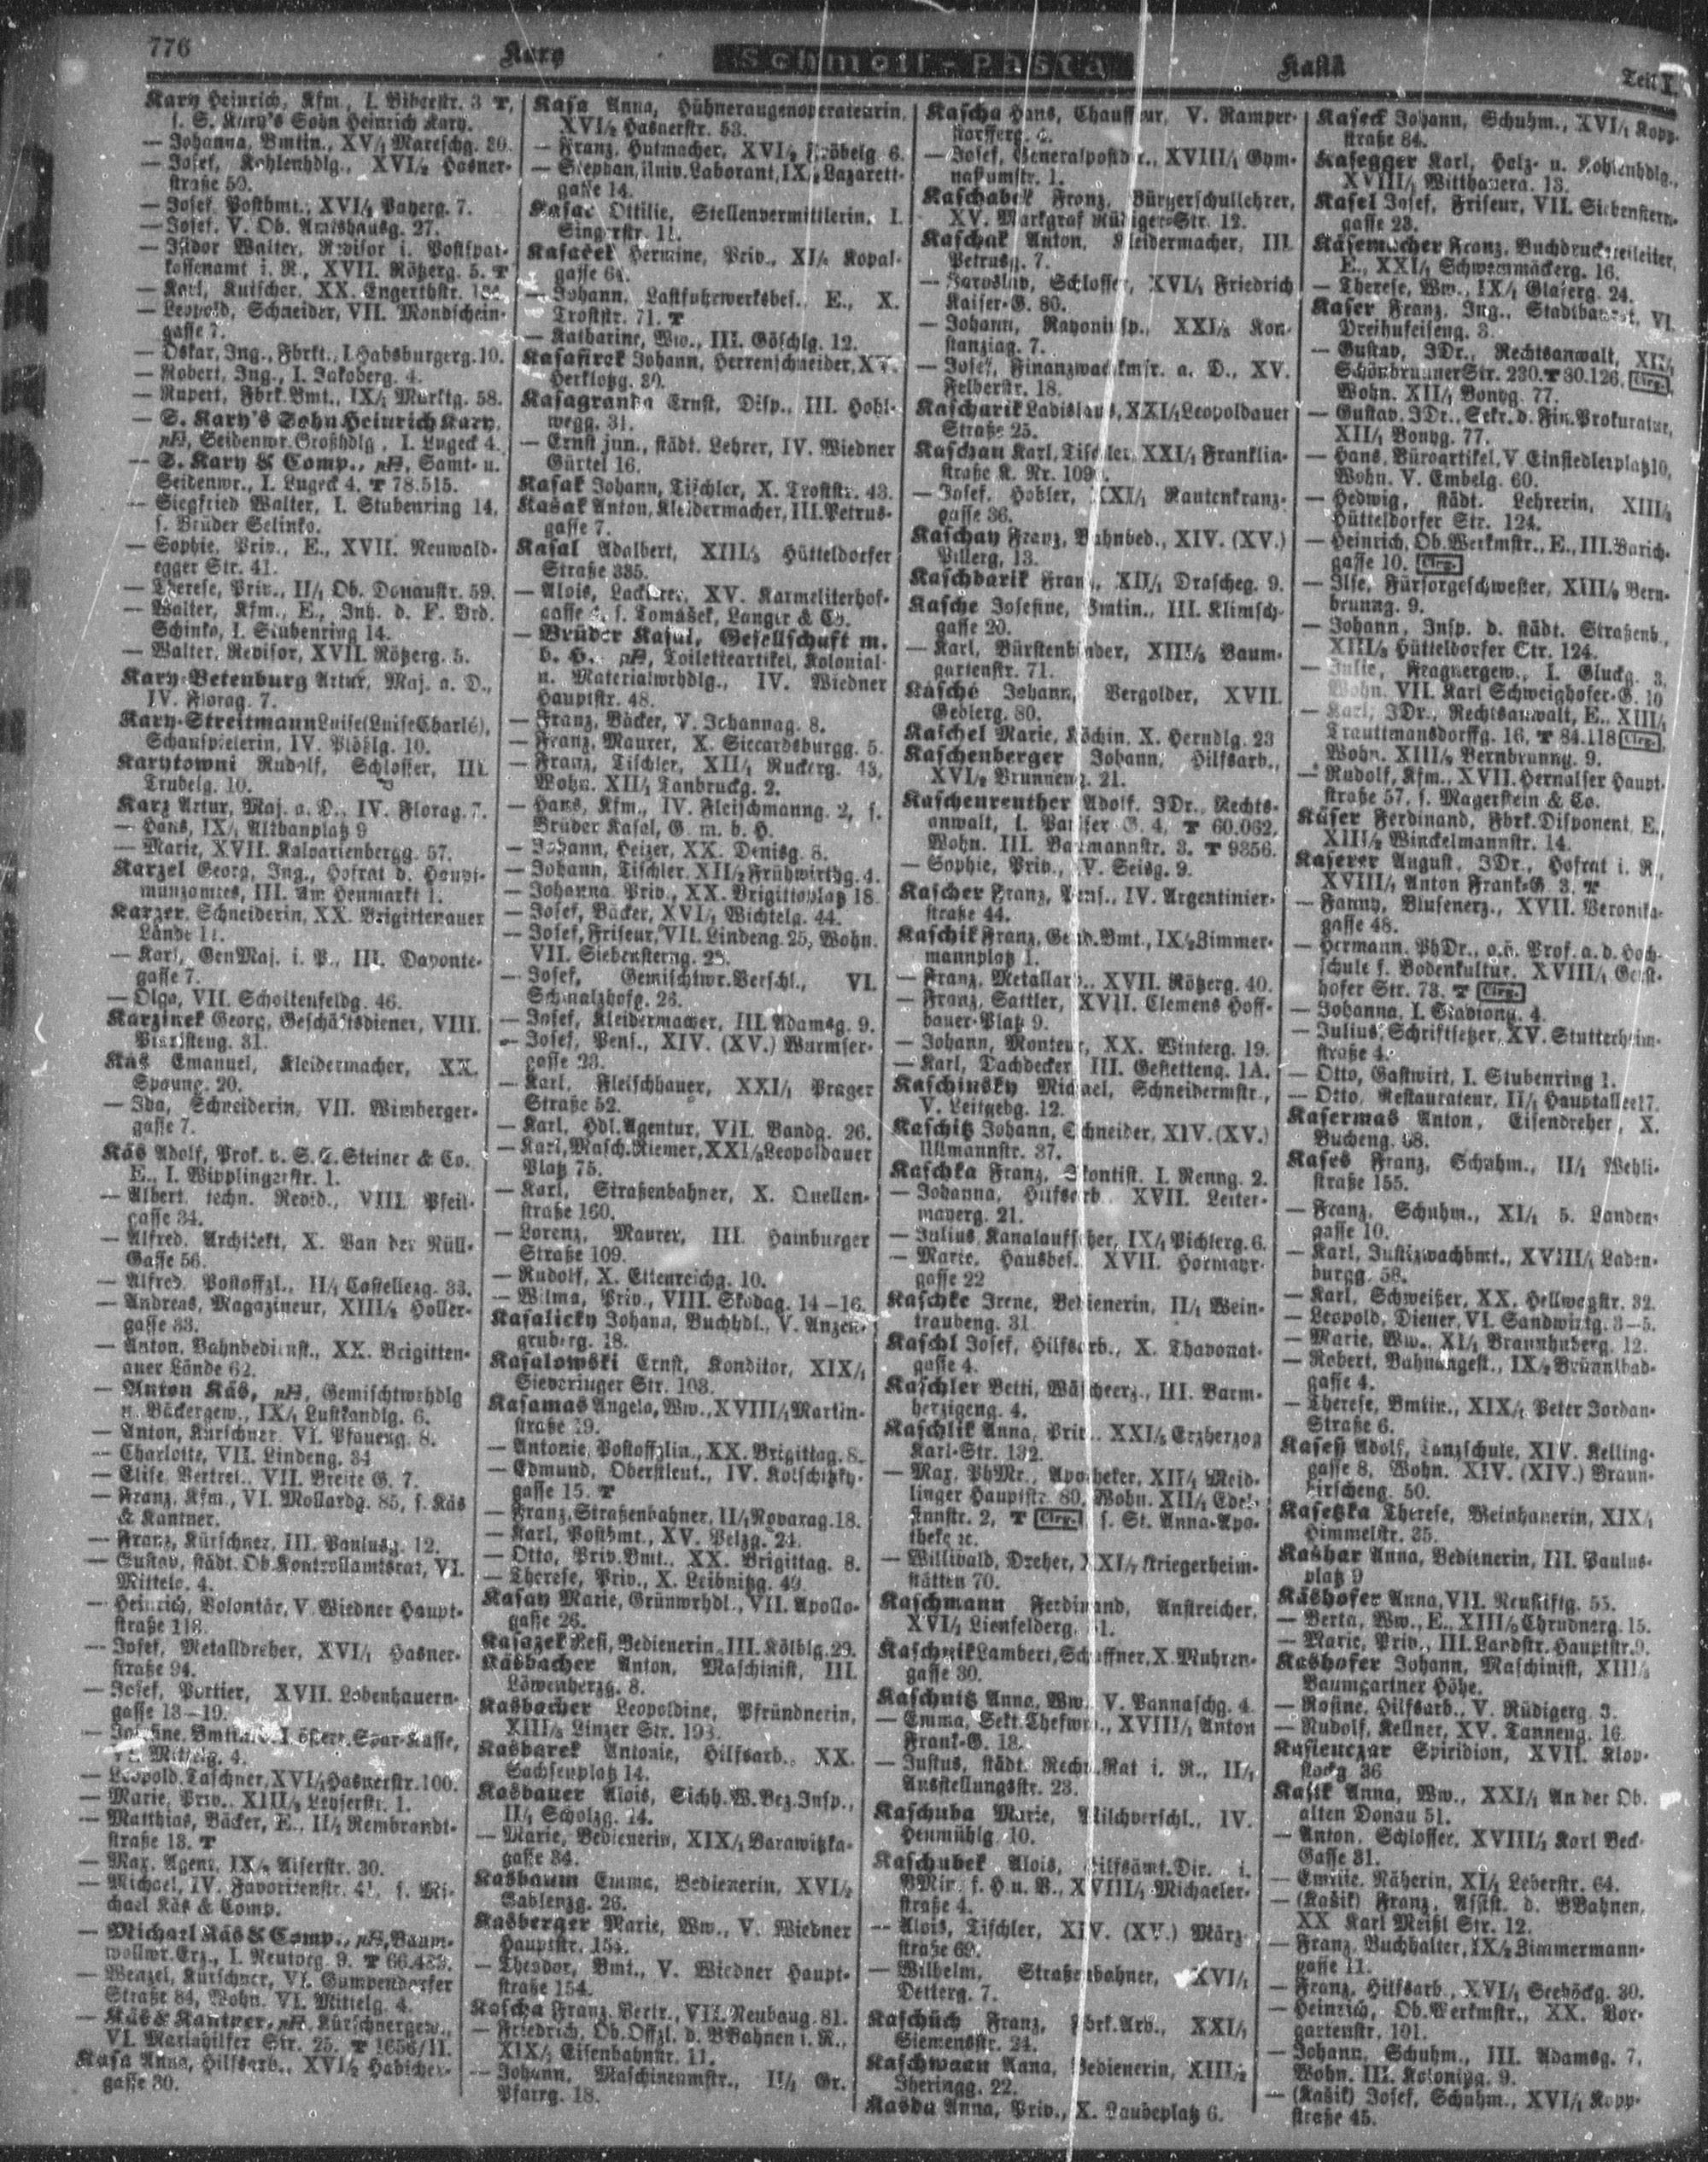 776
Kary
Schmoll-Pasta
Kasik
Teil I.
Kary Heinrich, Kfm., I. Biberstr. 3 T,
s. S. Kary's Sohn Heinrich Kary.
— Johanna, Bmtin., XV/1 Mareschg. 30.
— Josef, Kohlenhdlg., XVI/2 Hasner-
straße 50.
— Josef, Postbmt., XVI/1 Payerg. 7.
— Josef, V. Ob. Amtshausg. 27.
— Isidor Walter, Revisor i. Postspar-
kassenamt i. R., XVII. Rötzerg. 5. T
— Karl, Kutscher, XX. Engerthstr.
— Leopold, Schneider, VII. Mondschein-
gasse 7.
— Oskar, Ing., Fbrkt., I. Habsburgerg. 10.
— Robert, Ing., I. Jakoberg. 4.
— Rupert, Fbrk.Bmt., IX/1 Marktg. 58.
— S. Kary's Sohn Heinrich Kary,
Seidenwr. Großhdlg., I. Lugeck 4.
— S. Kary & Comp., Samt- u.
Seidenwr., I. Lugeck 4. T 78.515.
— Siegfried Walter, I. Stubenring 14,
s. Brüder Selinko.
— Sophie, Priv., E., XVII. Neuwald-
egger Str. 41.
— Therese, Priv., II/1 Ob. Donaustr. 59.
— Walter, Kfm., E., Inh. d. F. Brd.
Schinko, I. Stubenring 14.
— Walter, Revisor, XVII. Rötzerg. 5.
Kary-Petenburg Artur, Maj. a. D.,
IV. Florag. 7.
Kary-Streitmann Luise (Luise Charlé),
Schauspielerin, IV. Plößlg. 10.
Karytowni Rudolf, Schlosser, III.
Trubelg. 10.
Karz Artur, Maj. a. D., IV. Florag. 7.
— Hans, IX/1 Althanplatz 9
— Marie, XVII. Kalvarienbergg. 57.
Karzel Georg, Ing., Hofrat d. Haupt-
münzamtes, III. Am Heumarkt 1.
Karzer, Schneiderin, XX. Brigittenauer
Lände 11.
— Karl, GenMaj. i. P., III. Dapontе-
gasse 7.
— Olga, VII. Schottenfeldg. 46.
Karzinek Georg, Geschäftsdiener, VIII.
Piaristeng. 31.
Kas Emanuel, Kleidermacher, XX.
Spaung. 20.
— Ida, Schneiderin, VII. Wimberger-
gasse 7.
Käs Adolf, Prok. d. S. Steiner & Co.
E., I. Wipplingerstr. 1.
— Albert, techn. Revid., VIII. Pfeil-
gasse 34.
— Alfred, Architekt, X. Van der Nüll-
Gasse 56.
— Alfred, Postoffzl., II/1 Castellezg. 33.
— Andreas, Magazineur, XIII/2 Holler-
gasse 33.
— Anton, Bahnbedienst., XX. Brigitten-
auer Lände 62.
— Anton Käs, Gemischtwrhdlg
u. Bäckergew., IX/1 Lustkandlg. 6.
— Anton, Kürschner, VI. Pfaueng. 8.
— Charlotte, VII. Lindeng. 34
— Elise, Vertret., VII. Breite G. 7.
— Franz, Kfm., VI. Mollardg. 85, s. Käs
& Kantner.
— Franz, Kürschner, III. Paulusg. 12.
— Gustav, städt. Ob.Kontrollamtsrat, VI.
Mittelg. 4.
— Heinrich, Volontär, V. Wiedner Haupt-
straße 118.
— Josef, Metalldreher, XVI/1 Hasner-
straße 94.
— Josef, Portier, XVII. Lobenhauern-
gasse 13–19.
— Josefine, Bmtin. d. I. österr. Spar-Kasse,
VI. Mittelg. 4.
— Leopold, Taschner, XVI/1 Hasnerstr. 100.
— Marie, Priv., XIII/2 Leyserstr. 1.
— Matthias, Bäcker, E., II/1 Rembrandt-
straße 13. T
— Max, Agent, Alserstr. 30.
— Michael, IV. Favoritenstr. 41, s. Mi-
chael Käs & Comp.
— Michael Käs & Comp., Baum-
wollwr.Erz., I. Neutorg. 9. T
— Wenzel, Kürschner, VI. Gumpendorfer
Straße 84, Wohn. VI. Mittelg. 4.
— Käs & Kantner, Kürschnergew.,
VI. Mariahilfer Str. 25. T 1656/11.
Kasa Anna, Hilfsarb., XVI/2 Habicher-
gasse 30.
Kasa Anna, Hühneraugenoperateurin,
XVI/2 Hasnerstr. 53.
— Franz, Hutmacher, XVI/2 Fröbelg. 6.
— Stephan, Univ. Laborant, IX/2 Lazarett-
gasse 14.
Kasac Ottilie, Stellenvermittlerin, I.
Singerstr. 11.
Kasaček Hermine, Priv., XI/2 Kopal-
gasse 64.
— Johann, Lastfuhrwerksbes., E., X.
Troststr. 71. T
— Katharine, Ww., III. Göschlg. 12.
Kasafirek Johann, Herrenschneider, XV.
Herklotzg. 30.
Kasagranda Ernst, Disp., III. Hohl-
wegg. 31.
— Ernst jun., städt. Lehrer, IV. Wiedner
Gürtel 16.
Kasak Johann, Tischler, X. Troststr. 43.
Kašak Anton, Kleidermacher, III. Petrus-
gasse 7.
Kasal Adalbert, XIII/5 Hütteldorfer
Straße 335.
— Alois, Lackierer, XV. Karmeliterhof-
gasse 4, s. Tomášek, Langer & Co.
— Brüder Kasal, Gesellschaft m.
b. H., Toiletteartikel, Kolonial-
u. Materialwrhdlg., IV. Wiedner
Hauptstr. 48.
— Franz, Bäcker, V. Johannag. 8.
— Franz, Maurer, X. Siccardsburgg. 5.
— Franz, Tischler, XII/1 Ruckerg. 43,
Wohn. XII/1 Tanbruckg. 2.
— Hans, Kfm., IV. Fleischmanng. 2, s.
Brüder Kasal, G. m. b. H.
— Johann, Heizer, XX. Denisg. 8.
— Johann, Tischler, XII/2 Frühwirthg. 4.
— Johanna, Priv., XX. Brigittaplatz 18.
— Josef, Bäcker, XVI/1 Wichtelg. 44.
— Josef, Friseur, VII. Lindeng. 25, Wohn.
VII. Siebensterng. 23.
— Josef, Gemischtwr.Verschl., VI.
Schmalzhofg. 26.
— Josef, Kleidermacher, III. Adamsg. 9.
— Josef, Pens., XIV. (XV.) Wurmser-
gasse 23.
— Karl, Fleischhauer, XXI/1 Prager
Straße 52.
— Karl, Hdl.Agentur, VII. Bandg. 26.
— Karl, Masch.Riemer, XXI/3 Leopoldauer
Platz 75.
— Karl, Straßenbahner, X. Quellen-
straße 160.
— Lorenz, Maurer, III. Hainburger
Straße 109.
— Rudolf, X. Ettenreichg. 10.
— Wilma, Priv., VIII. Skodag. 14–16.
Kasalicky Johann, Buchhdl., V. Anzen-
gruberg. 18.
Kasalowski Ernst, Konditor, XIX/1
Sieveringer Str. 103.
Kasamas Angela, Ww., XVIII/1 Martin-
straße 39.
— Antonie, Postoffzlin., XX. Brigittag. 8.
— Edmund, Oberstleut., IV. Kolschitzky-
gasse 15. T
— Franz, Straßenbahner, II/1 Novarag. 18.
— Karl, Postbmt., XV. Pelzg. 24.
— Otto, Priv.Bmt., XX. Brigittag. 8.
— Therese, Priv., X. Leibnitzg. 49
Kasay Marie, Grünwrhdl., VII. Apollo-
gasse 26.
Kasazek Resi, Bedienerin, III. Kölblg. 29.
Käsbacher Anton, Maschinist, III.
Löwenherzg. 8.
Kasbacher Leopoldine, Pfründnerin,
XIII/5 Linzer Str. 193.
Kasbarek Antonie, Hilfsarb., XX.
Sachsenplatz 14.
Kasbauer Alois, Sichh.W.Bez.Insp.,
II/1 Scholzg. 14.
— Marie, Bedienerin, XIX/1 Barawitzka-
gasse 34.
Kasbaum Emma, Bedienerin, XVI/2
Gablenzg. 26.
Kasberger Marie, Ww., V. Wiedner
Hauptstr. 154.
— Theodor, Bmt., V. Wiedner Haupt-
straße 154.
Kascha Franz, Vertr., VII. Neubaug. 81.
— Friedrich, Ob.Offzl. d. BBahnen i. R.,
XIX/1 Eisenbahnstr. 11.
— Johann, Maschinenmstr., II/1 Gr.
Pfarrg. 18.
Kascha Hans, Chauffeur, V. Ramper-
storfferg.
— Josef, Generalpostdir., XVIII/1 Gym-
nasiumstr. 1.
Kaschabek Franz, Bürgerschullehrer,
XV. Markgraf Rüdiger-Str. 12.
Kaschak Anton, Kleidermacher, III.
Petrusg. 7.
— Jaroslav, Schlosser, XVI/1 Friedrich
Kaiser-G. 80.
— Johann, Rayoninsp., XXI/5 Kon-
stanziag. 7.
— Josef, Finanzwachkmsr. a. D., XV.
Felberstr. 18.
Kascharik Ladislaus, XXI/1 Leopoldauer
Straße 25.
Kaschau Karl, Tischler, XXI/1 Franklin-
straße K. Nr.
— Josef, Hobler, XXI/1 Rautenkranz-
gasse 36.
Kaschay Franz, Bahnbed., XIV. (XV.)
Pillerg. 13.
Kaschdarik Franz, XII/1 Drascheg. 9.
Kasche Josefine, Bmtin., III. Klimsch-
gasse 20.
— Karl, Bürstenbinder, XIII/5 Baum-
gartenstr. 71.
Kasché Johann, Vergolder, XVII.
Geblerg. 80.
Kaschel Marie, Köchin, X. Herndlg. 23
Kaschenberger Johann, Hilfsarb.,
XVI/2 Brunneng. 21.
Kaschenreuther Adolf, JDr., Rechts-
anwalt, I. Pariser G. 4, T 60.062,
Wohn. III. Baumannstr. 3. T 9356.
— Sophie, Priv., IV. Seisg. 9.
Kascher Franz, Pens., IV. Argentinier-
straße 44.
Kaschik Franz, Gend.Bmt., IX/2 Zimmer-
mannplatz 1.
— Franz, Metallarb., XVII. Rötzerg. 40.
— Franz, Sattler, XVII. Clemens Hoff-
bauer-Platz 9.
— Johann, Monteur, XX. Winterg. 19.
— Karl, Dachdecker, III. Gestetteng. 1A.
Kaschinsky Michael, Schneidermstr.,
V. Leitgebg. 12.
Kaschitz Johann, Schneider, XIV. (XV.)
Ullmannstr. 37.
Kaschka Franz, Skontist, I. Renng. 2.
— Johanna, Hilfsarb., XVII. Leiter-
mayerg. 21.
— Julius, Kanalaufseher, IX/1 Pichlerg. 6.
— Marie, Hausbes., XVII. Hormayr-
gasse 22
Kaschke Irene, Bedienerin, II/1 Wein-
traubeng. 31.
Kaschl Josef, Hilfsarb., X. Thavonat-
gasse 4.
Kaschler Betti, Wäscheerz., III. Barm-
herzigeng. 4.
Kaschlik Anna, Priv., XXI/5 Erzherzog
Karl-Str. 132.
— Max, PhMr., Apotheker, XII/1 Meid-
linger Hauptstr. 80, Wohn. XII/1 Edel-
sinnstr. 2, T Clrg., s. St. Anna-Apo-
theke ꝛc.
— Willibald, Dreher, XXI/7 Kriegerheim-
stätten 70.
Kaschmann Ferdinand, Anstreicher,
XVI/1 Lienfelderg.
Kaschnik Lambert, Schaffner, X. Muhren-
gasse 30.
Kaschnitz Anna, Ww., V. Vannaschg. 4.
— Emma, Sekt.Chefww., XVIII/1 Anton
Frank-G. 18.
— Justus, städt. Rechn.Rat i. R., II/1
Ausstellungsstr. 23.
Kaschuba Marie, Milchverschl., IV.
Heumühlg. 10.
Kaschubek Alois, Hilfsämt.Dir. i.
BMin. f. H. u. V., XVIII/1 Michaeler-
straße 4.
— Alois, Tischler, XIV. (XV.) März-
straße 69.
— Wilhelm, Straßenbahner, XVI/1
Detterg. 7.
Kaschüch Franz, Fbrk.Arb., XXI/1
Siemensstr. 24.
Kaschwann Anna, Bedienerin, XIII/2
Iheringg. 22.
Kasda Anna, Priv., X. Laubeplatz 6.
Kaseck Johann, Schuhm., XVI/1 Kopp-
straße 84.
Kasegger Karl, Holz- u. Kohlenhdlg.,
XVIII/1 Witthauerg. 13.
Kasel Josef, Friseur, VII. Siebenstern-
gasse 23.
Käsemacher Franz, Buchdruckereileiter,
E., XXI/1 Schwemmäckerg. 16.
— Therese, Ww., IX/1 Glaserg. 24.
Kaser Franz, Ing., Stadtbaurat, VI.
Dreihufeiseng. 3.
— Gustav, JDr., Rechtsanwalt, XII/1
Schönbrunner Str. 230. T 30.126, Clrg.
Wohn. XII/1 Bonyg. 77.
— Gustav, JDr., Sekr. d. Fin.Prokuratur,
XII/1 Bonyg. 77.
— Hans, Büroartikel, V Einsiedlerplatz 10,
Wohn. V. Embelg. 60.
— Hedwig, städt. Lehrerin, XIII/5
Hütteldorfer Str. 124.
— Heinrich, Ob.Werkmstr., E., III. Barich-
gasse 10. Clrg.
— Ilse, Fürsorgeschwester, XIII/9 Bern-
brunng. 9.
— Johann, Insp. d. städt. Straßenb.,
XIII/5 Hütteldorfer Str. 124.
— Julie, Fragnergew., I. Gluckg. 3,
Wohn. VII. Karl Schweighofer-G. 10
— Karl, JDr., Rechtsanwalt, E., XIII/1
Trauttmansdorffg. 16, T 84.118 Clrg.,
Wohn. XIII/9 Bernbrunng. 9.
— Rudolf, Kfm., XVII. Hernalser Haupt-
straße 57, s. Magerstein & Co.
Käser Ferdinand, Fbrk.Disponent, E.,
XIII/2 Winckelmannstr. 14.
Kaserer August, JDr., Hofrat i. R.,
XVIII/1 Anton Frank-G. 3. T
— Fanny, Blusenerz., XVII. Veronika-
gasse 48.
— Hermann, PhDr., o.ö. Prof. a. d. Hoch-
schule f. Bodenkultur, XVIII/1 Gerst-
hofer Str. 73. T Clrg.
— Johanna, I. Gradiong. 4.
— Julius, Schriftsetzer, XV. Stutterheim-
straße 4.
— Otto, Gastwirt, I. Stubenring 1.
— Otto, Restaurateur, II/1 Hauptallee 17.
Kasermas Anton, Eisendreher, X.
Bucheng. 68.
Kases Franz, Schuhm., II/1 Wehli-
straße 155.
— Franz, Schuhm., XI/1 5. Landen-
gasse 10.
— Karl, Justizwachbmt., XVIII/1 Laden-
burgg. 58.
— Karl, Schweißer, XX. Hellwagstr. 32.
— Leopold, Diener, VI. Sandwirtg. 3–5.
— Marie, Ww., XI/1 Braunhuberg. 12.
— Robert, Bahnangest., IX/2 Brünnlbad-
gasse 4.
— Therese, Bmtin., XIX/1 Peter Jordan-
Straße 6.
Kaseß Adolf, Tanzschule, XIV. Kelling-
gasse 8, Wohn. XIV. (XIV.) Braun-
hirscheng. 50.
Kasetzka Therese, Weinhauerin, XIX/1
Himmelstr. 35.
Kašhar Anna, Bedienerin, III. Paulus-
platz 9
Käshofer Anna, VII. Neustiftg. 55.
— Berta, Ww., E., XIII/5 Chrudnerg. 15.
— Marie, Priv., III. Landstr. Hauptstr. 9.
Kashofer Johann, Maschinist, XIII/5
Baumgartner Höhe.
— Rosine, Hilfsarb., V. Rüdigerg. 3.
— Rudolf, Kellner, XV. Tanneng. 16.
Kasienczar Spiridion, XVII. Klop-
stockg. 36
Kasik Anna, Ww., XXI/1 An der Ob.
alten Donau 51.
— Anton, Schlosser, XVIII/1 Karl Beck-
Gasse 31.
— Emilie, Näherin, XI/1 Leberstr. 64.
— (Kašik) Franz, Assist. d. BBahnen,
XX Karl Meißl Str. 12.
— Franz, Buchhalter, IX/2 Zimmermann-
gasse 11.
— Franz, Hilfsarb., XVI/1 Seeböckg. 30.
— Heinrich, Ob.Werkmstr., XX. Vor-
gartenstr. 101.
— Johann, Schuhm., III. Adamsg. 7,
Wohn. III. Kolonitzg. 9.
— (Kašik) Josef, Schuhm., XVI/1 Kopp-
straße 45.